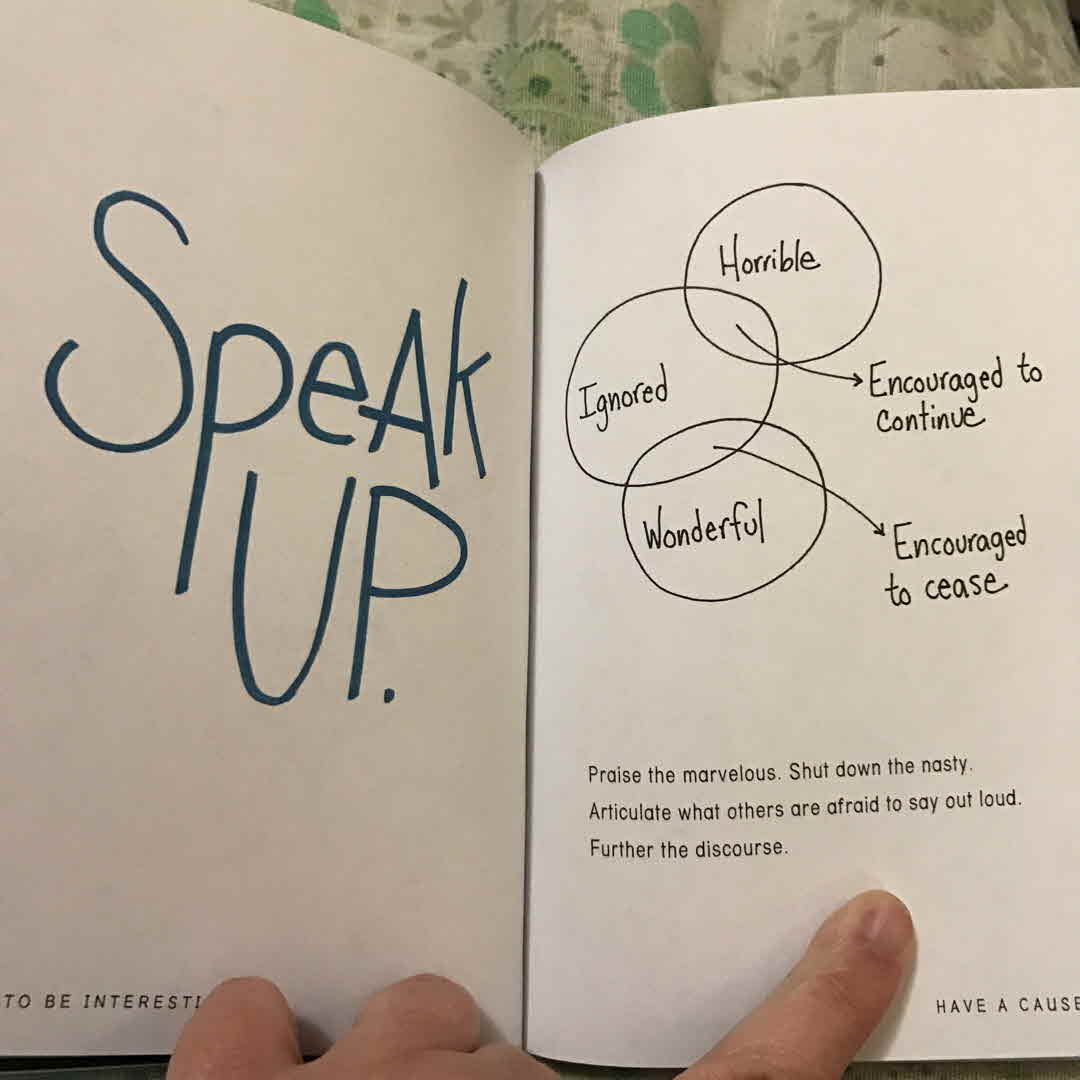 SpeAk
UP.
TO BE INTERESTI
Horrible
Ignored
Encouraged to
continue
Wonderful
Encouraged
to cease
Praise the marvelous. Shut down the nasty.
Articulate what others are afraid to say out loud.
Further the discourse.
HAVE A CAUSE